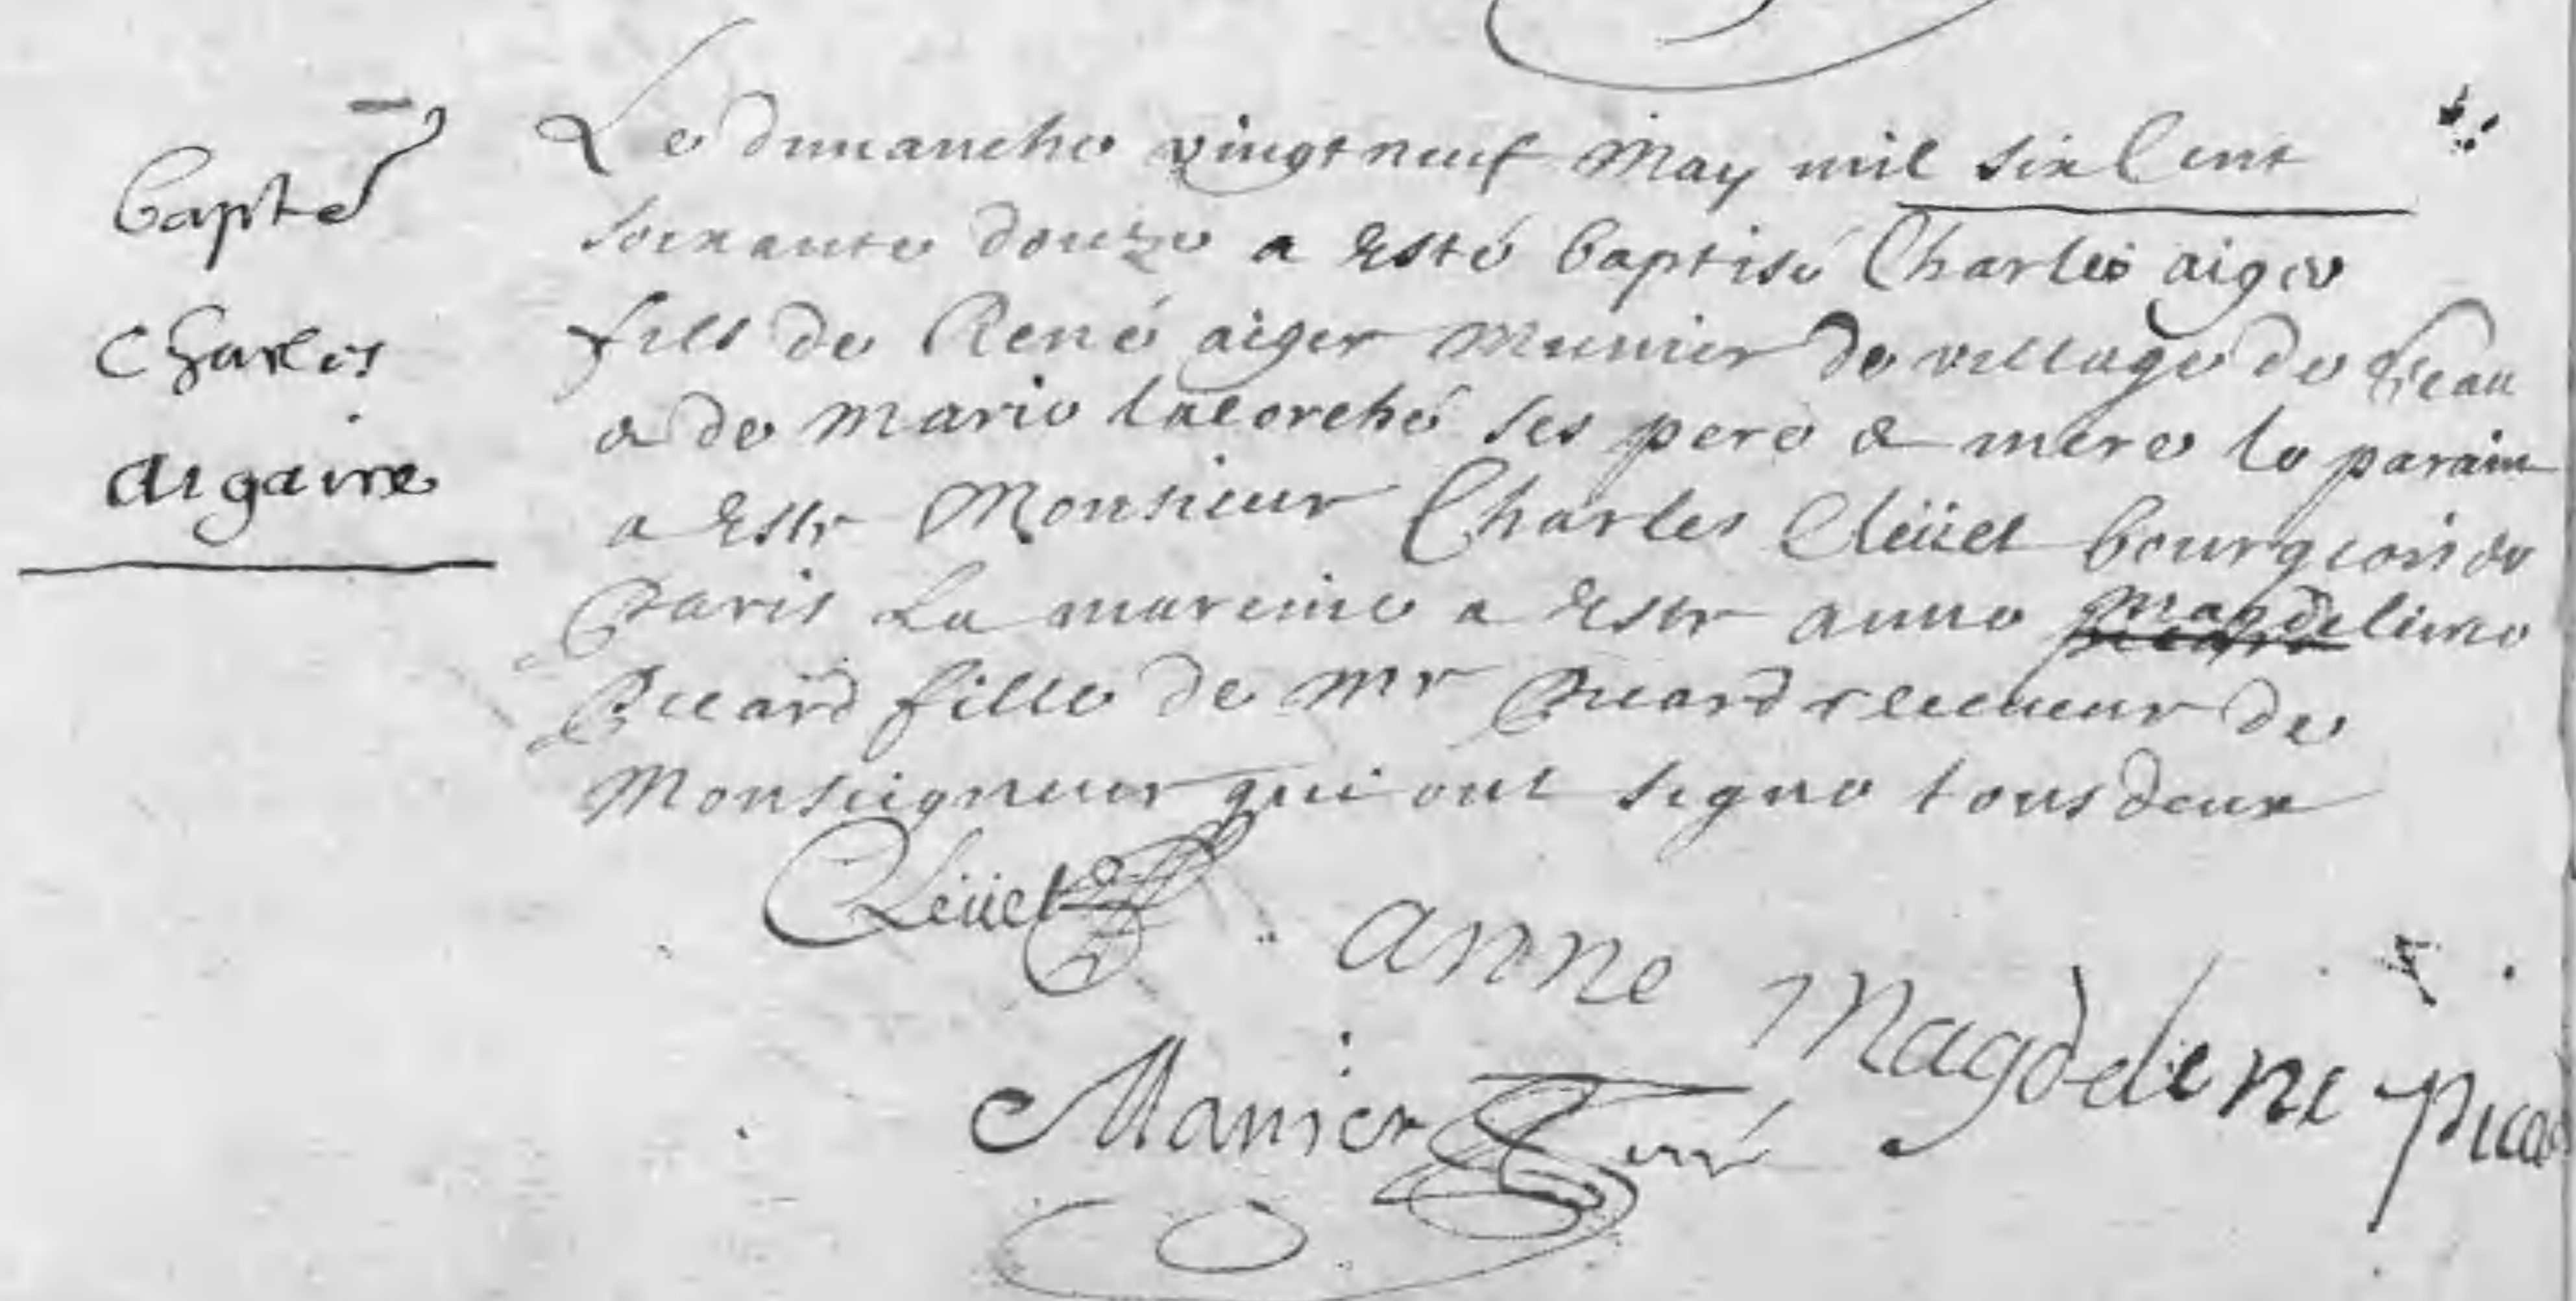 bapte
Charles
Aigaire
Le dimanche vingt neuf May mil six Cent
soixante douze a esté baptisé Charles aiger
fils de René aiger munier de village de
& de marie lacorché ses pere & mere le parain
a este Monsieur Charles Cleüet bourgeois de
Paris La mareine a este anne magdeleine
Picard fille de Mr Picard receueur de
Monseigneur qui ont signe tous deux
Cleüet
anne Magdelene Picard
Manier Curé